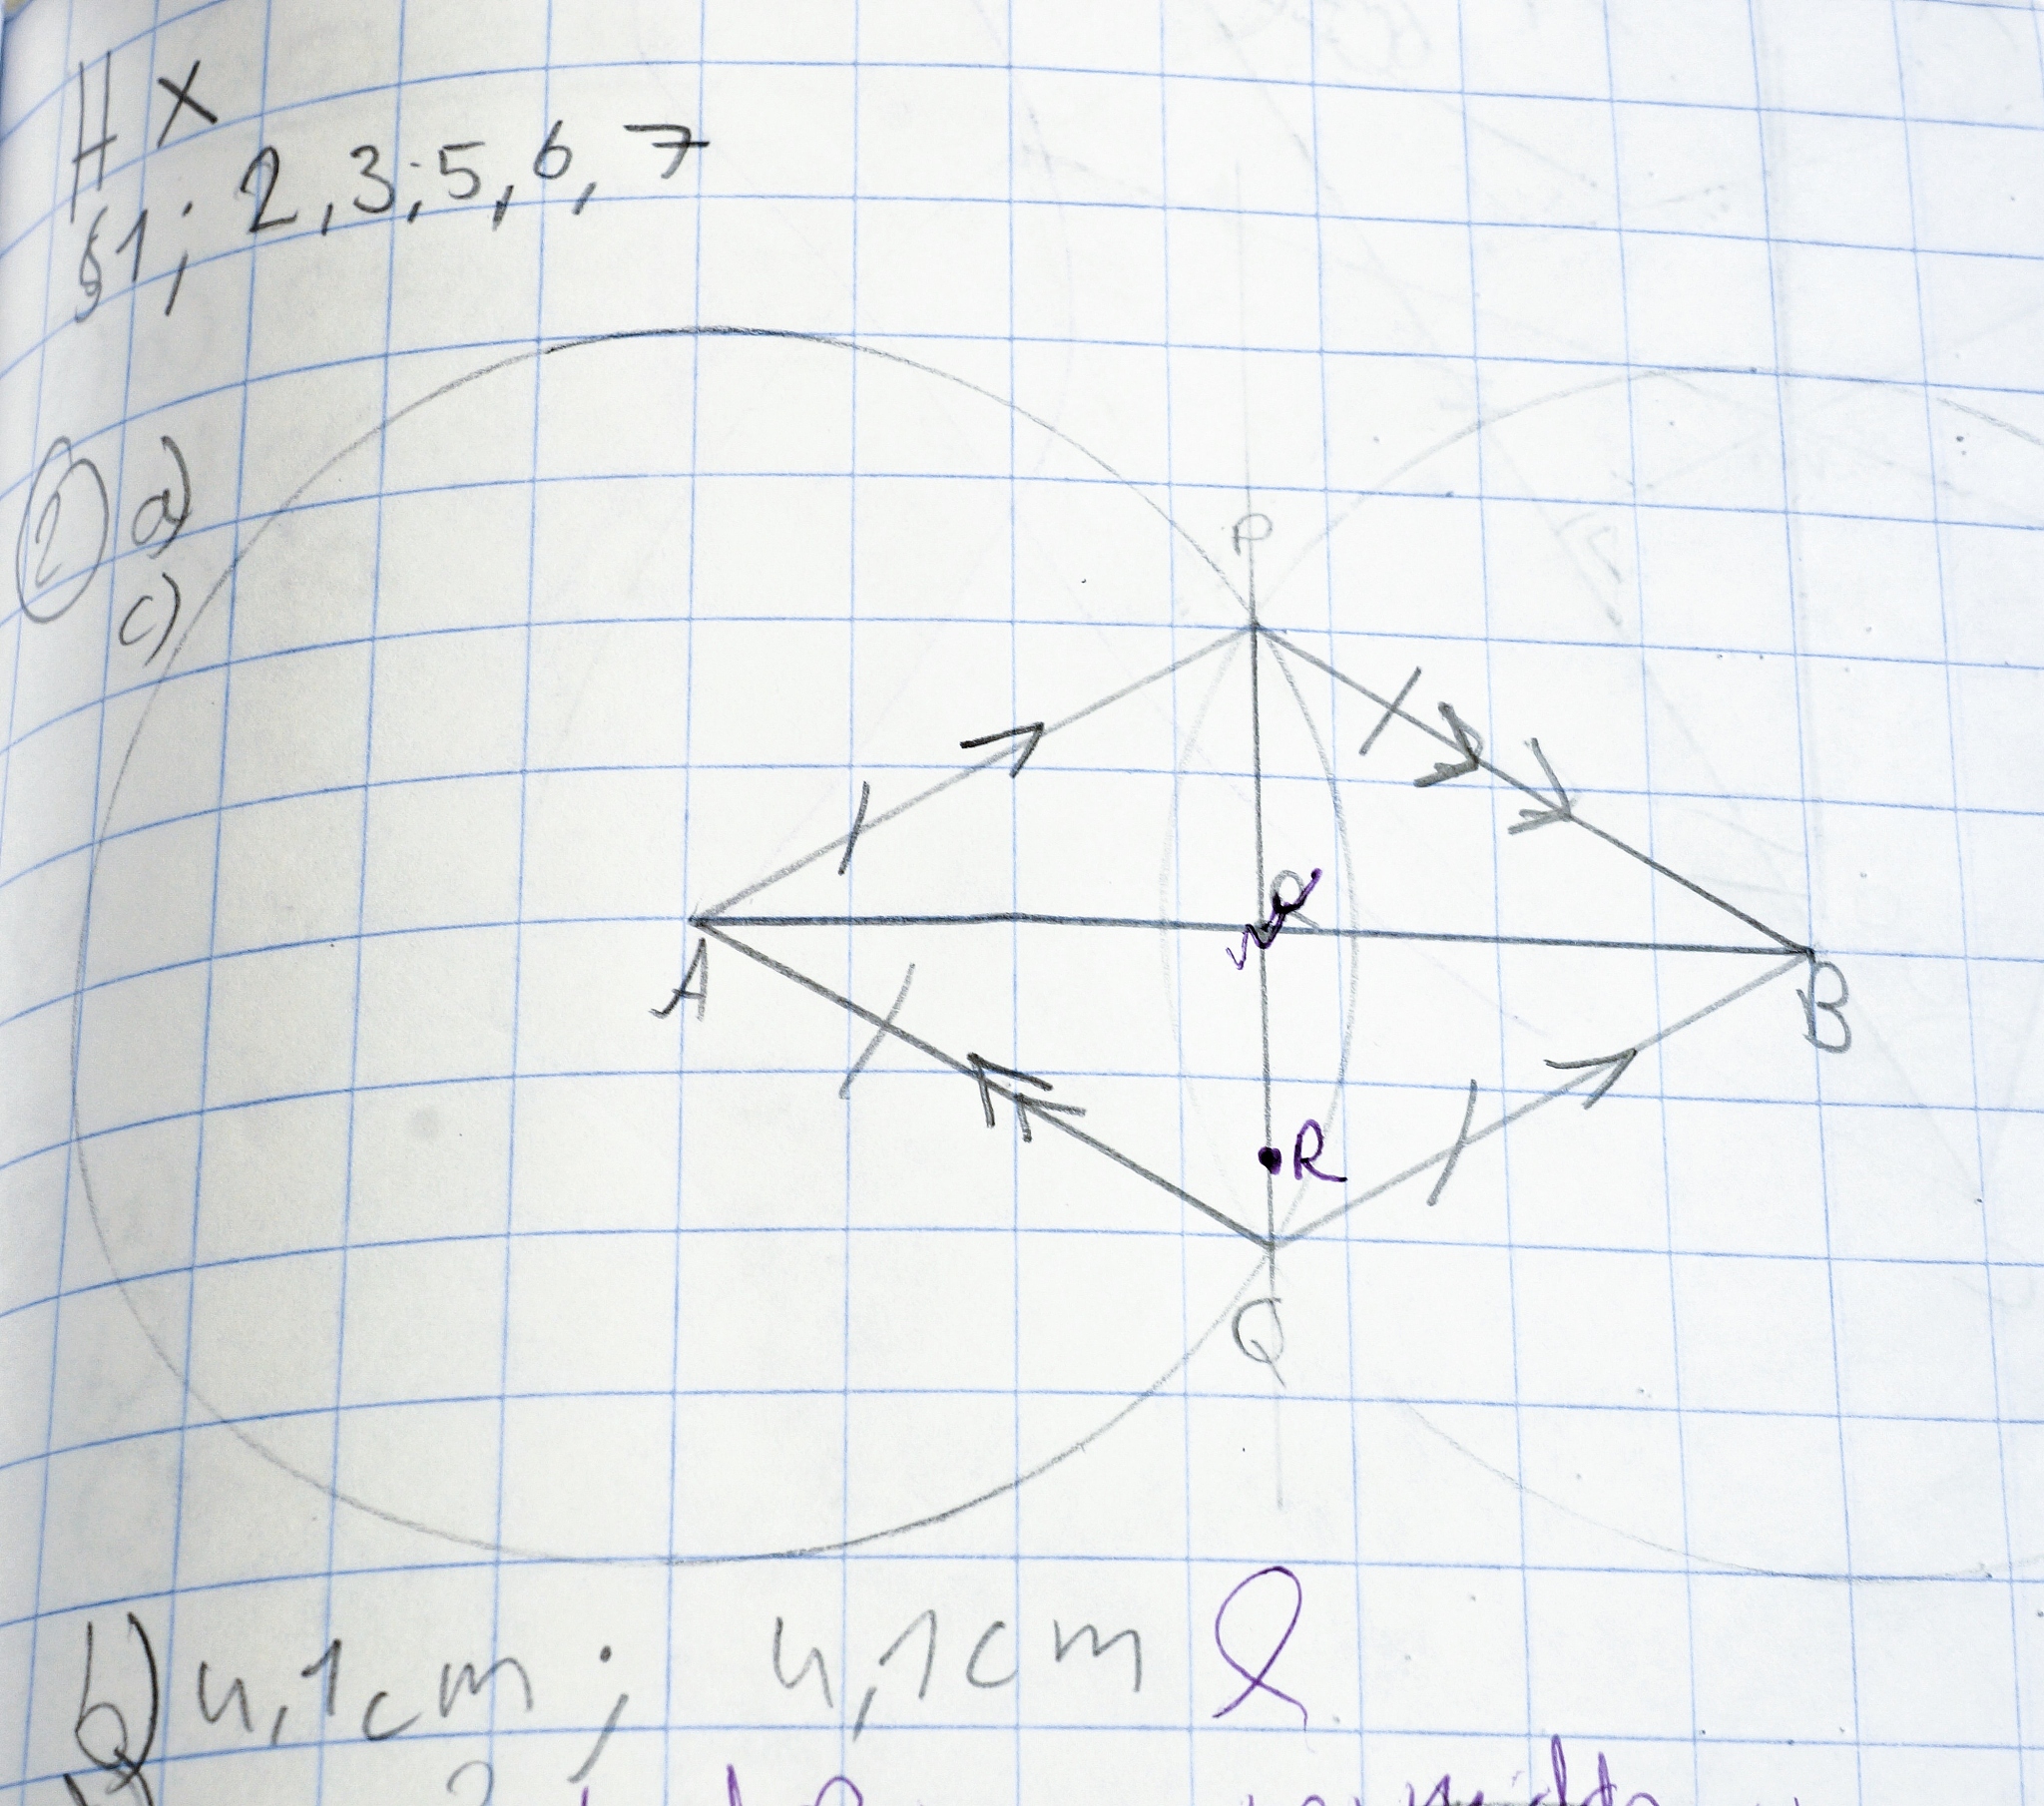 H X
§1; 2, 3, 5, 6, 7
2 a)
c)
P
R
A
B
R
Q
b) 4,1cm; 4,1cm